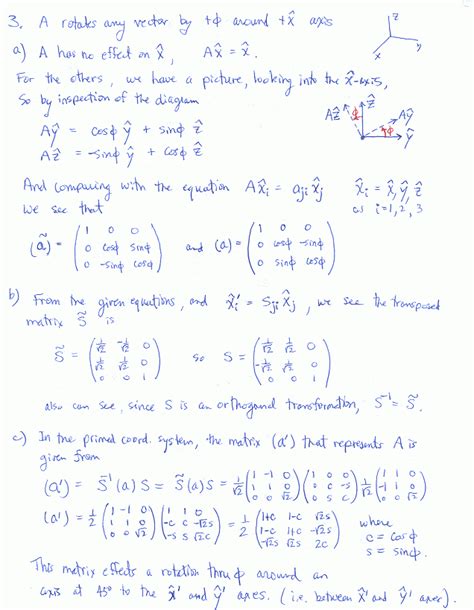 3. A rotates any vector by +φ around +x̂ axis
a) A has no effect on x̂, Ax̂ = x̂.
For the others, we have a picture, looking into the x̂-axis,
So by inspection of the diagram
Aŷ = cosφ ŷ + sinφ ẑ
Aẑ = -sinφ ŷ + cosφ ẑ
z
y
x
Aẑ φ ẑ Aŷ
+φ ŷ
And comparing with the equation Ax̂ᵢ = aⱼᵢ x̂ⱼ x̂ᵢ = x̂, ŷ, ẑ
We see that as i=1,2,3
(ã) = (1 0 0 / 0 cosφ sinφ / 0 -sinφ cosφ) and (a) = (1 0 0 / 0 cosφ -sinφ / 0 sinφ cosφ)
b) From the given equations, and x̂ᵢ' = Sⱼᵢ x̂ⱼ, we see the transposed
matrix S̃ is
S̃ = (1/√2 -1/√2 0 / 1/√2 1/√2 0 / 0 0 1) so S = (1/√2 1/√2 0 / -1/√2 1/√2 0 / 0 0 1)
also can see, since S is an orthogonal transformation, S⁻¹ = S̃.
c) In the primed coord. system, the matrix (a') that represents A is
given from
(a') = S⁻¹(a) S = S̃(a) S = 1/2 (1 -1 0 / 1 1 0 / 0 0 √2) (1 0 0 / 0 c -s / 0 s c) (1 1 0 / -1 1 0 / 0 0 √2)
(a') = 1/2 (1 -1 0 / 1 1 0 / 0 0 √2) (1 1 0 / -c c -√2s / -s s √2c) = 1/2 (1+c 1-c √2s / 1-c 1+c -√2s / -√2s √2s 2c) where
c = cosφ
s = sinφ.
This matrix effects a rotation thru φ around an
axis at 45° to the x̂' and ŷ' axes. (i.e. between x̂' and ŷ' axes).